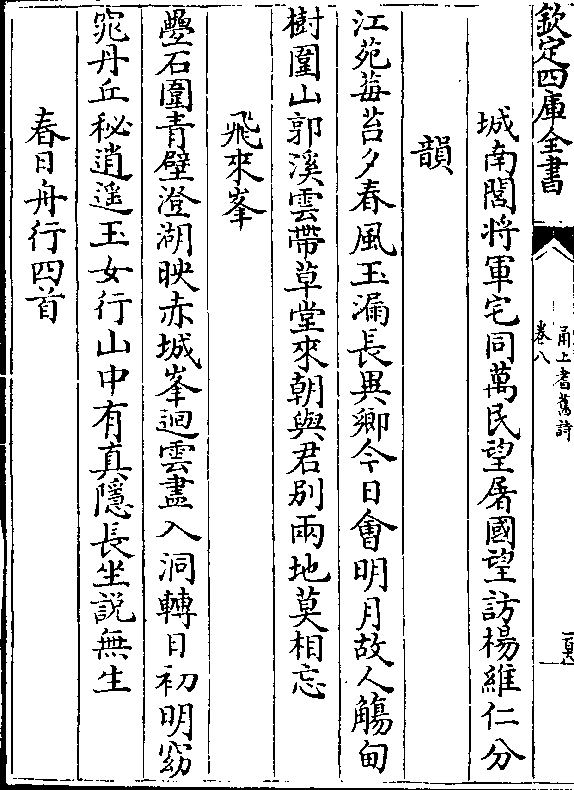 欽定四庫全書
甬上耆舊詩
卷八
城南閣將軍宅同萬民望屠國望訪楊維仁分
韻
江苑莓苔夕春風玉漏長異鄉今日會明月故人觴甸
樹圍山郭溪雲帶草堂來朝與君別兩地莫相忘
飛來峯
疊石圍青壁澄湖映赤城峯迴雲盡入洞轉日初明窈
窕丹丘秘逍遥玉女行山中有真隱長坐說無生
春日舟行四首